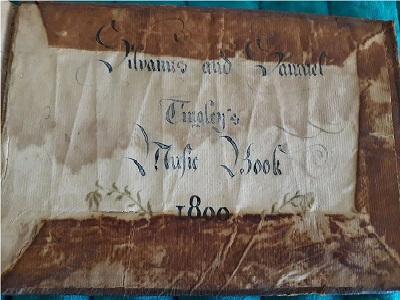 Silvanus and Samuel
Tingley's
Music Book
1800